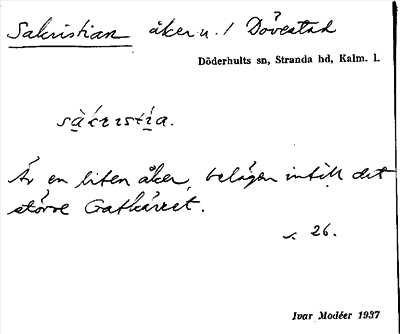 Sakristian åker u. / Dövestad
Döderhults sn, Stranda hd, Kalm. l.
sàkrıstı̀a.
Är en liten åker, belägen intill det
större Gatkärret.
s. 26.
Ivar Modéer 1937